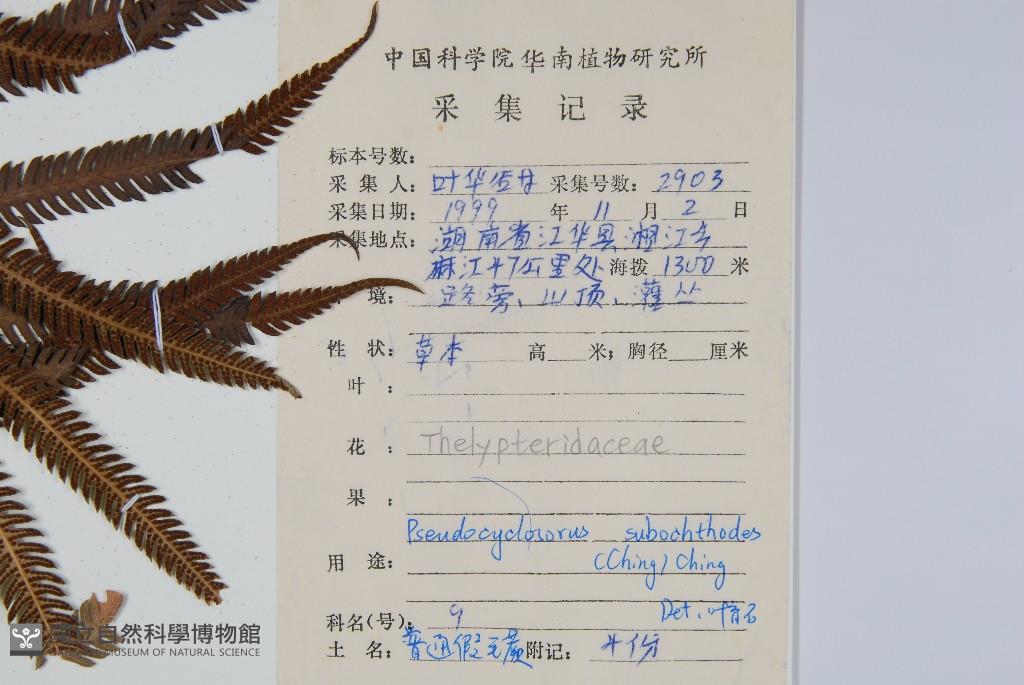 中国科学院华南植物研究所
采集记录
标本号数：
采集人：叶华谷 采集号数：2903
采集日期：1999年11月2日
采集地点：湖南省江华县湘江乡
麻江47公里处 海拔1300米
境：路旁、山顶、灌丛
性状：草本 高 米；胸径 厘米
叶：
花：Thelypteridaceae
果：
Pseudocyclosorus subochthodes
用途：(Ching) Ching
Det.叶育石
科名(号)：9
土名：普通假毛蕨 附记：4份
國立自然科學博物館
NATIONAL MUSEUM OF NATURAL SCIENCE